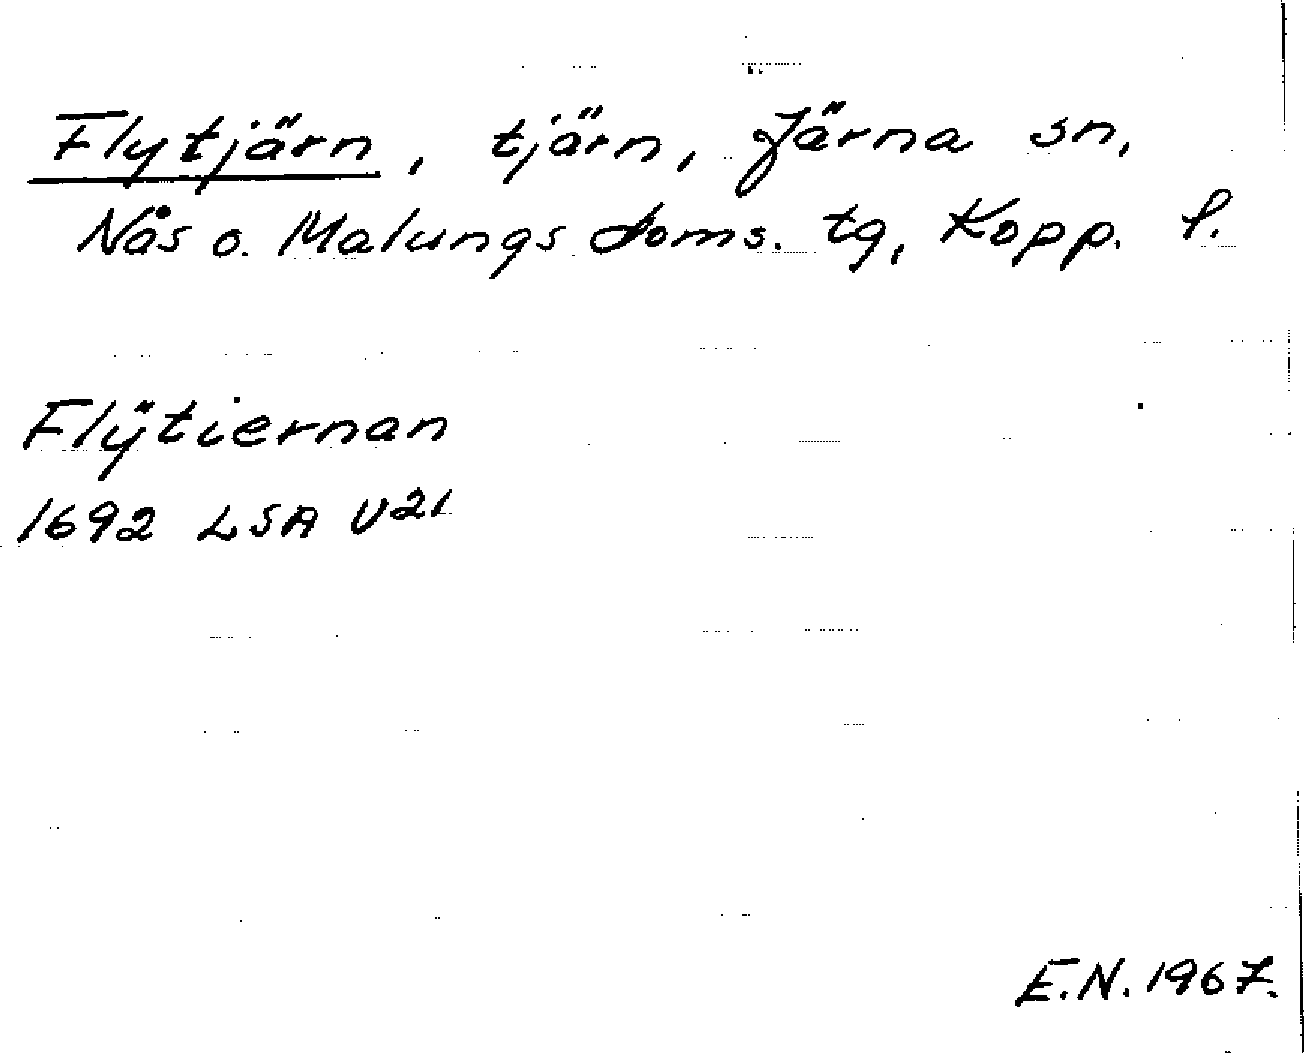 Flytjärn, tjärn, Järna sn,
Nås o. Malungs doms. tg, Kopp. l.
Flÿtiernan
1692 LSA U21
E.N. 1967.